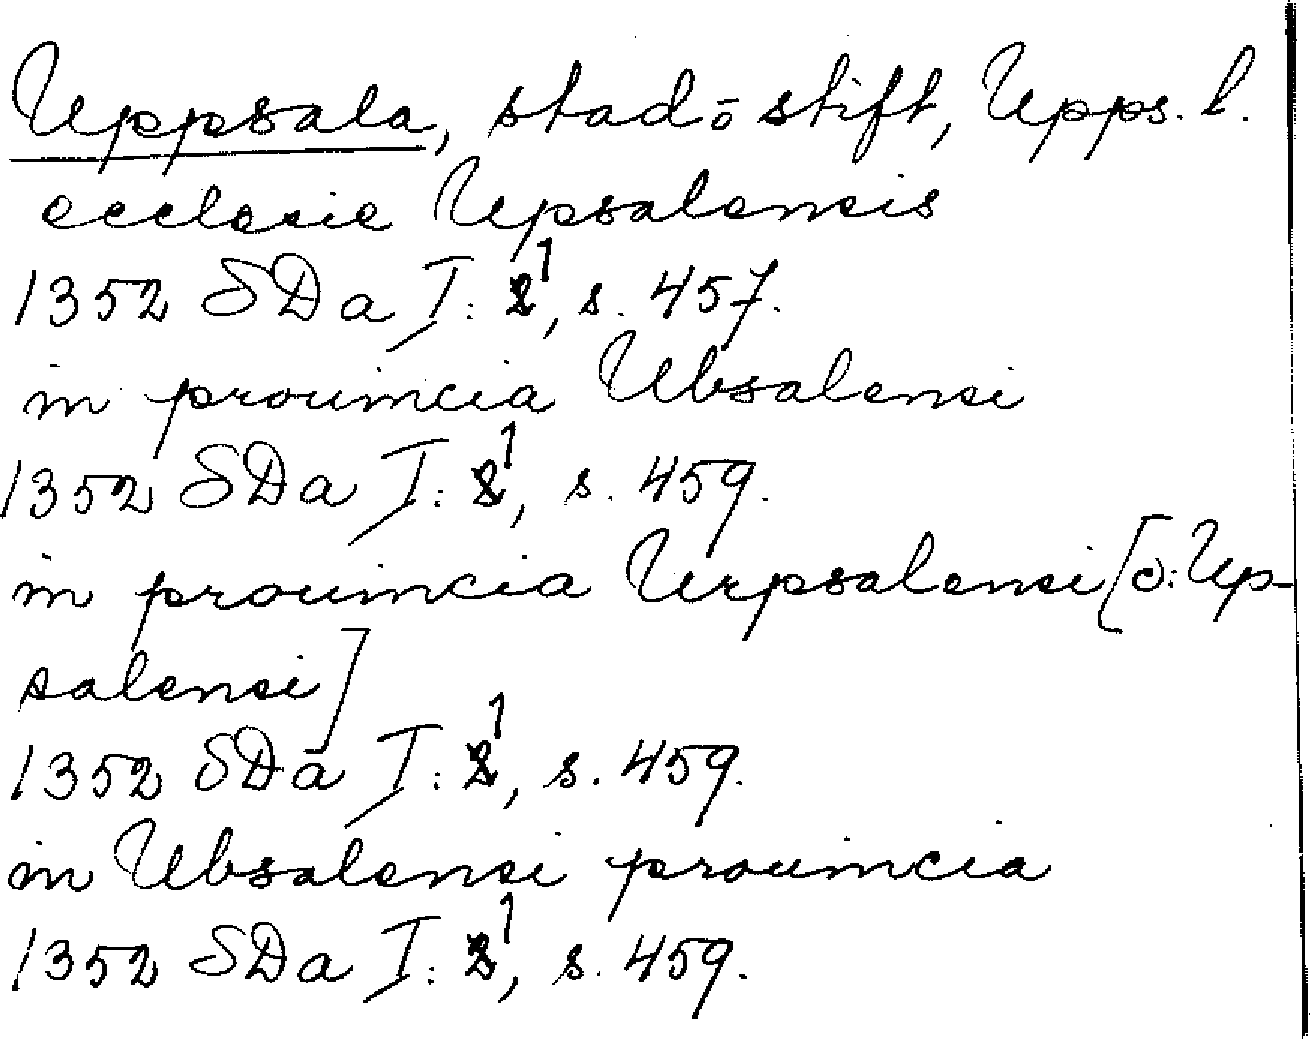 Uppsala, stad o stift, Upps. l.
ecclesie Upsalensis
1352 SDa I: 1, s. 457.
in prouincia Ubsalensi
1352 SDa I: 1, s. 459.
in prouincia Urpsalensi [ɔ: Up-
salensi]
1352 SDa I: 1, s. 459.
in Ubsalensi prouincia
1352 SDa I: 1, s. 459.